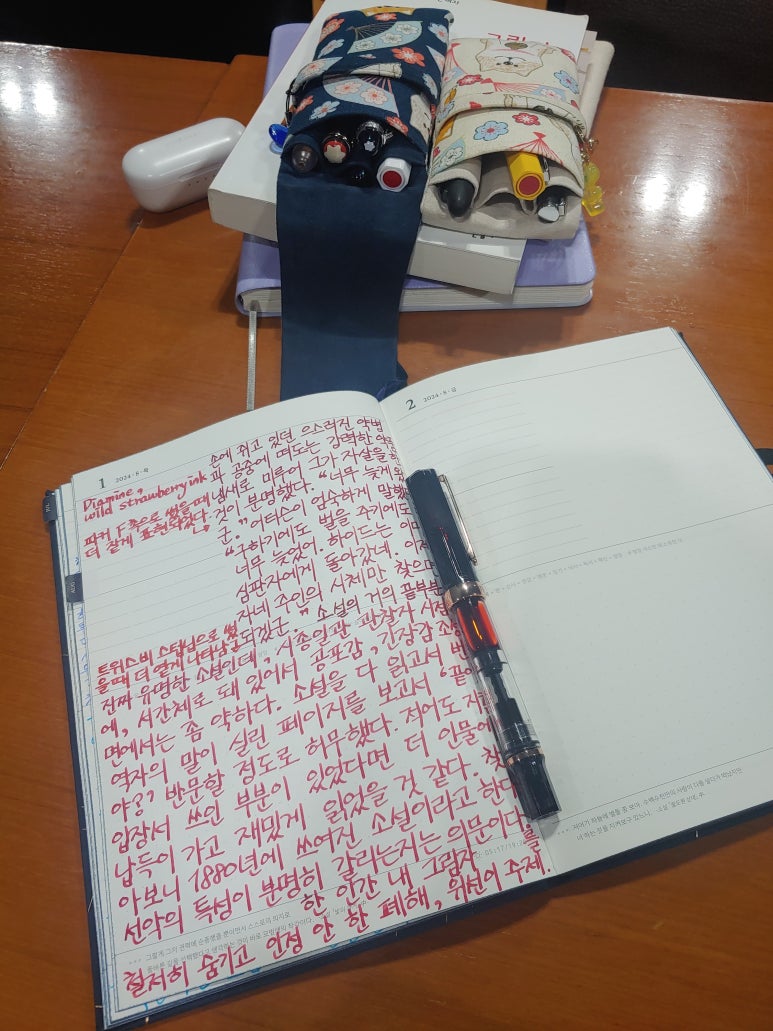 1 2024 - 8 - 목
Diamine,
wild strawberry ink
파커 F촉으로 썼을 때
더 짙게 표현되었다.
손에 쥐고 있던 으스러진 약병
과 공중에 떠도는 강력한 약품
냄새로 미루어 그가 자살을 한
것이 분명했다. "너무 늦게 왔
군." 어터슨이 엄숙하게 말했
"구하기에도 벌을 주기에도
너무 늦었어. 하이드는 이미
심판자에게 돌아갔네. 이제
자네 주인의 시체만 찾으면
되겠군." 소설의 거의 끝부분
트위스비 스텁닙으로 썼
을때 더 옅게 나타남
진짜 유명한 소설인데, 시종일관 관찰자 시점
에, 서간체로 돼 있어서 공포감, 긴장감 조성
면에서는 좀 약하다. 소설을 다 읽고서 번
역자의 말이 실린 페이지를 보고서 '끝이
야?' 반문할 정도로 허무했다. 적어도 지킬
입장서 쓰인 부분이 있었다면 더 인물에
납득이 가고 재밌게 읽었을 것 같다. 찾
아보니 1880년에 쓰여진 소설이라고 한다
선악의 특성이 분명히 갈라는지는 의문이다.
한 인간 내 그림자를
철저히 숨기고 인정 안 한 폐해, 위선이 주제.
2 2024 - 8 - 금
AUG